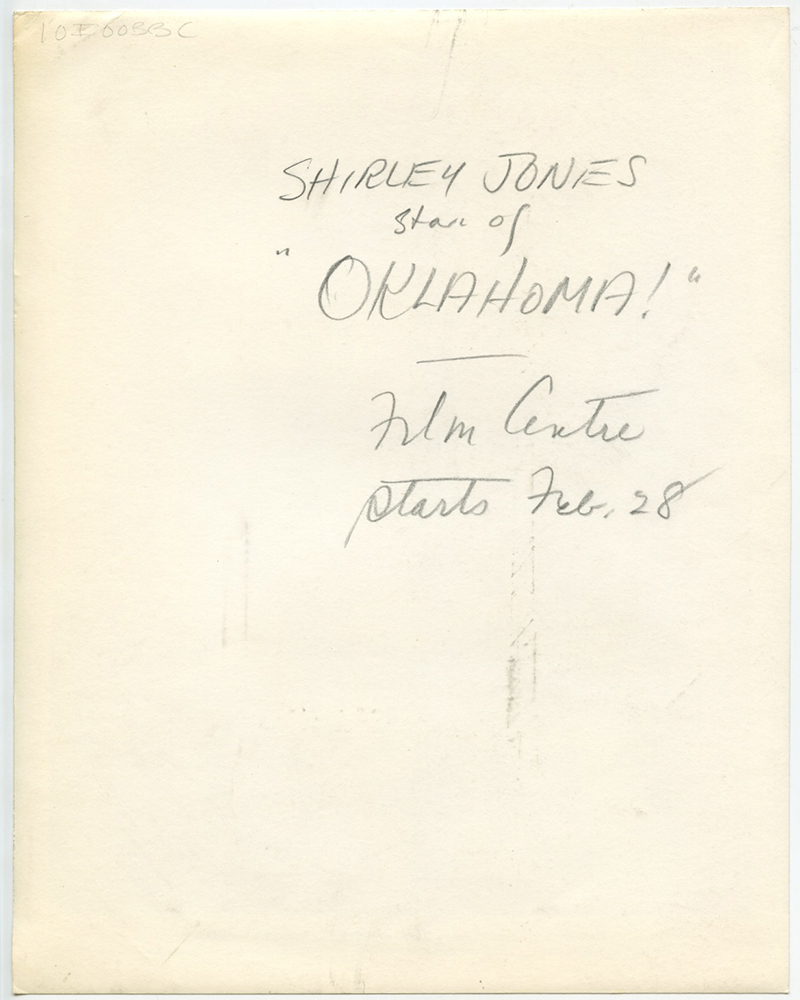 SHIRLEY JONES
star of
"OKLAHOMA!"
Film Centre
starts Feb. 28